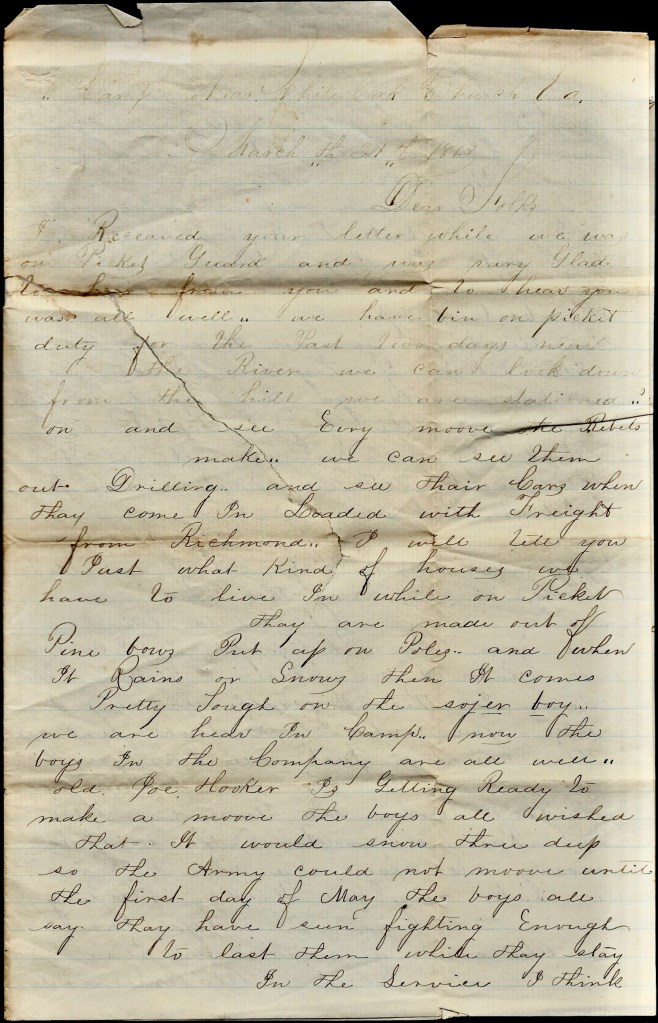 Camp Near White Oak Church Va.
March the 1st 1863
Dear Folks
I Receaved your letter while we was
on Picket Guard and was vary Glad
to hear from you and to hear you
was all well,, we have bin on picket
duty for the Past two days near
the River we can look down
from the hill we are stationed
on and see Evry moove the Rebels
make,, we can see them
out Drilling,, and see thair Carz when
thay come In Loaded with Freight
from Richmond,, I will tell you
Just what Kind of housez we
have to live In while on Picket
thay are made out of
Pine bowz Put up on Polez,, and when
It Rains or Snowz then It comes
Pretty Tough on the sojer boy,,
we are hear In Camp,, now the
boys In the Company are all well,,
old Joe Hooker Iz Getting Ready to
make a moove the boys all wished
that It would snow three deep
so the Army could not moove until
the first day of May the boys all
say thay have seen fighting Enough
to last them while thay stay
In the Service I think